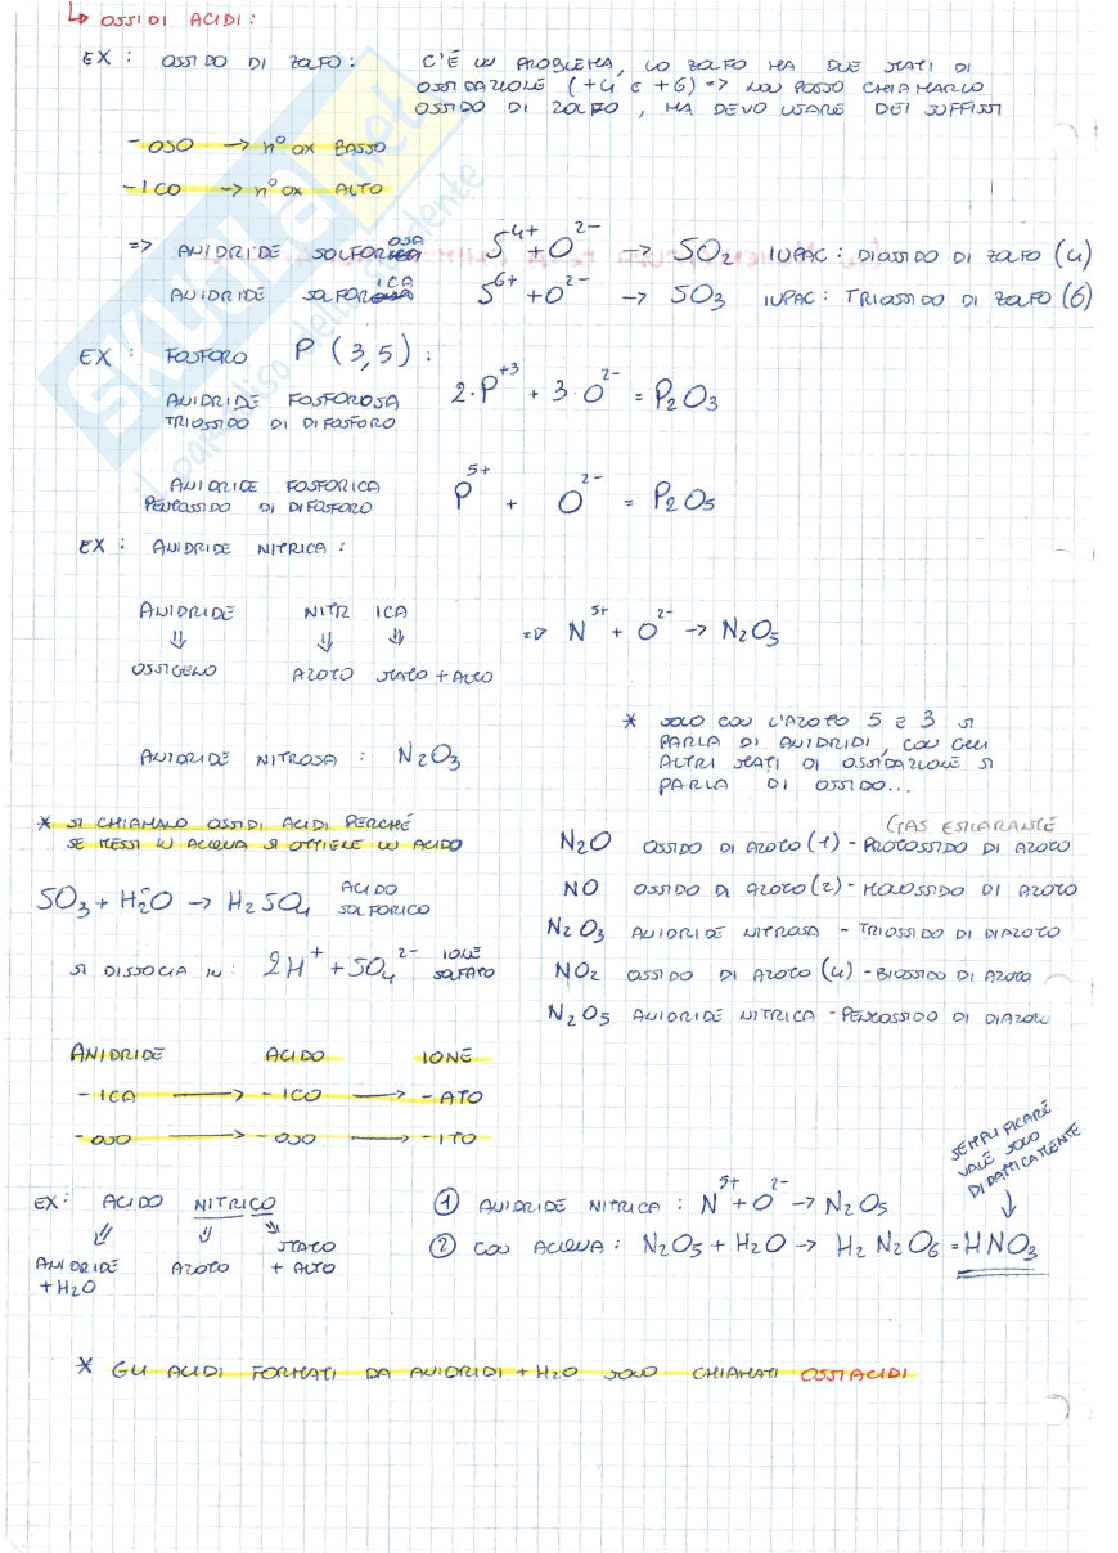 ↳ OSSIDI ACIDI:
EX: OSSIDO DI ZOLFO: C'È UN PROBLEMA, LO ZOLFO HA DUE STATI DI
OSSIDAZIONE (+4 E +6) => NON POSSO CHIAMARLO
OSSIDO DI ZOLFO, MA DEVO USARE DEI SUFFISSI
-OSO → n° ox BASSO
-ICO → n° ox ALTO
=> ANIDRIDE SOLFOROSA S⁴⁺+O²⁻ → SO₂ IUPAC: DIOSSIDO DI ZOLFO (4)
ANIDRIDE SOLFORICA S⁶⁺+O²⁻ → SO₃ IUPAC: TRIOSSIDO DI ZOLFO (6)
EX: FOSFORO P (3,5):
ANIDRIDE FOSFOROSA 2·P⁺³ + 3·O²⁻ = P₂O₃
TRIOSSIDO DI DIFOSFORO
ANIDRIDE FOSFORICA P⁵⁺ + O²⁻ = P₂O₅
PENTOSSIDO DI DIFOSFORO
EX: ANIDRIDE NITRICA:
ANIDRIDE NITR ICA => N⁵⁺ + O²⁻ → N₂O₅
⇓ ⇓ ⇓
OSSIGENO AZOTO STATO + ALTO
* SOLO CON L'AZOTO 5 E 3 SI
PARLA DI ANIDRIDI, CON GLI
ALTRI STATI DI OSSIDAZIONE SI
PARLA DI OSSIDO...
ANIDRIDE NITROSA: N₂O₃
* SI CHIAMANO OSSIDI ACIDI PERCHÉ
SE MESSI IN ACQUA SI OTTIENE UN ACIDO
SO₃ + H₂O → H₂SO₄ ACIDO
SOLFORICO
SI DISSOCIA IN: 2H⁺ + SO₄²⁻ IONE
SOLFATO
GAS ESILARANTE
N₂O OSSIDO DI AZOTO (1) - PROTOSSIDO DI AZOTO
NO OSSIDO DI AZOTO (2) - MONOSSIDO DI AZOTO
N₂O₃ ANIDRIDE NITROSA - TRIOSSIDO DI DIAZOTO
NO₂ OSSIDO DI AZOTO (4) - BIOSSIDO DI AZOTO
N₂O₅ ANIDRIDE NITRICA - PENTOSSIDO DI DIAZOTO
ANIDRIDE ACIDO IONE
-ICA → -ICO → -ATO
-OSO → -OSO → -ITO
SEMPLIFICARE
VALE SOLO
DIDATTICAMENTE
EX: ACIDO NITRICO
⇓ ⇓ ⇓
ANIDRIDE AZOTO STATO
+ H₂O + ALTO
① ANIDRIDE NITRICA: N⁵⁺+O²⁻ → N₂O₅
② CON ACQUA: N₂O₅ + H₂O → H₂N₂O₆ = HNO₃
* GLI ACIDI FORMATI DA ANIDRIDI + H₂O SONO CHIAMATI OSSIACIDI